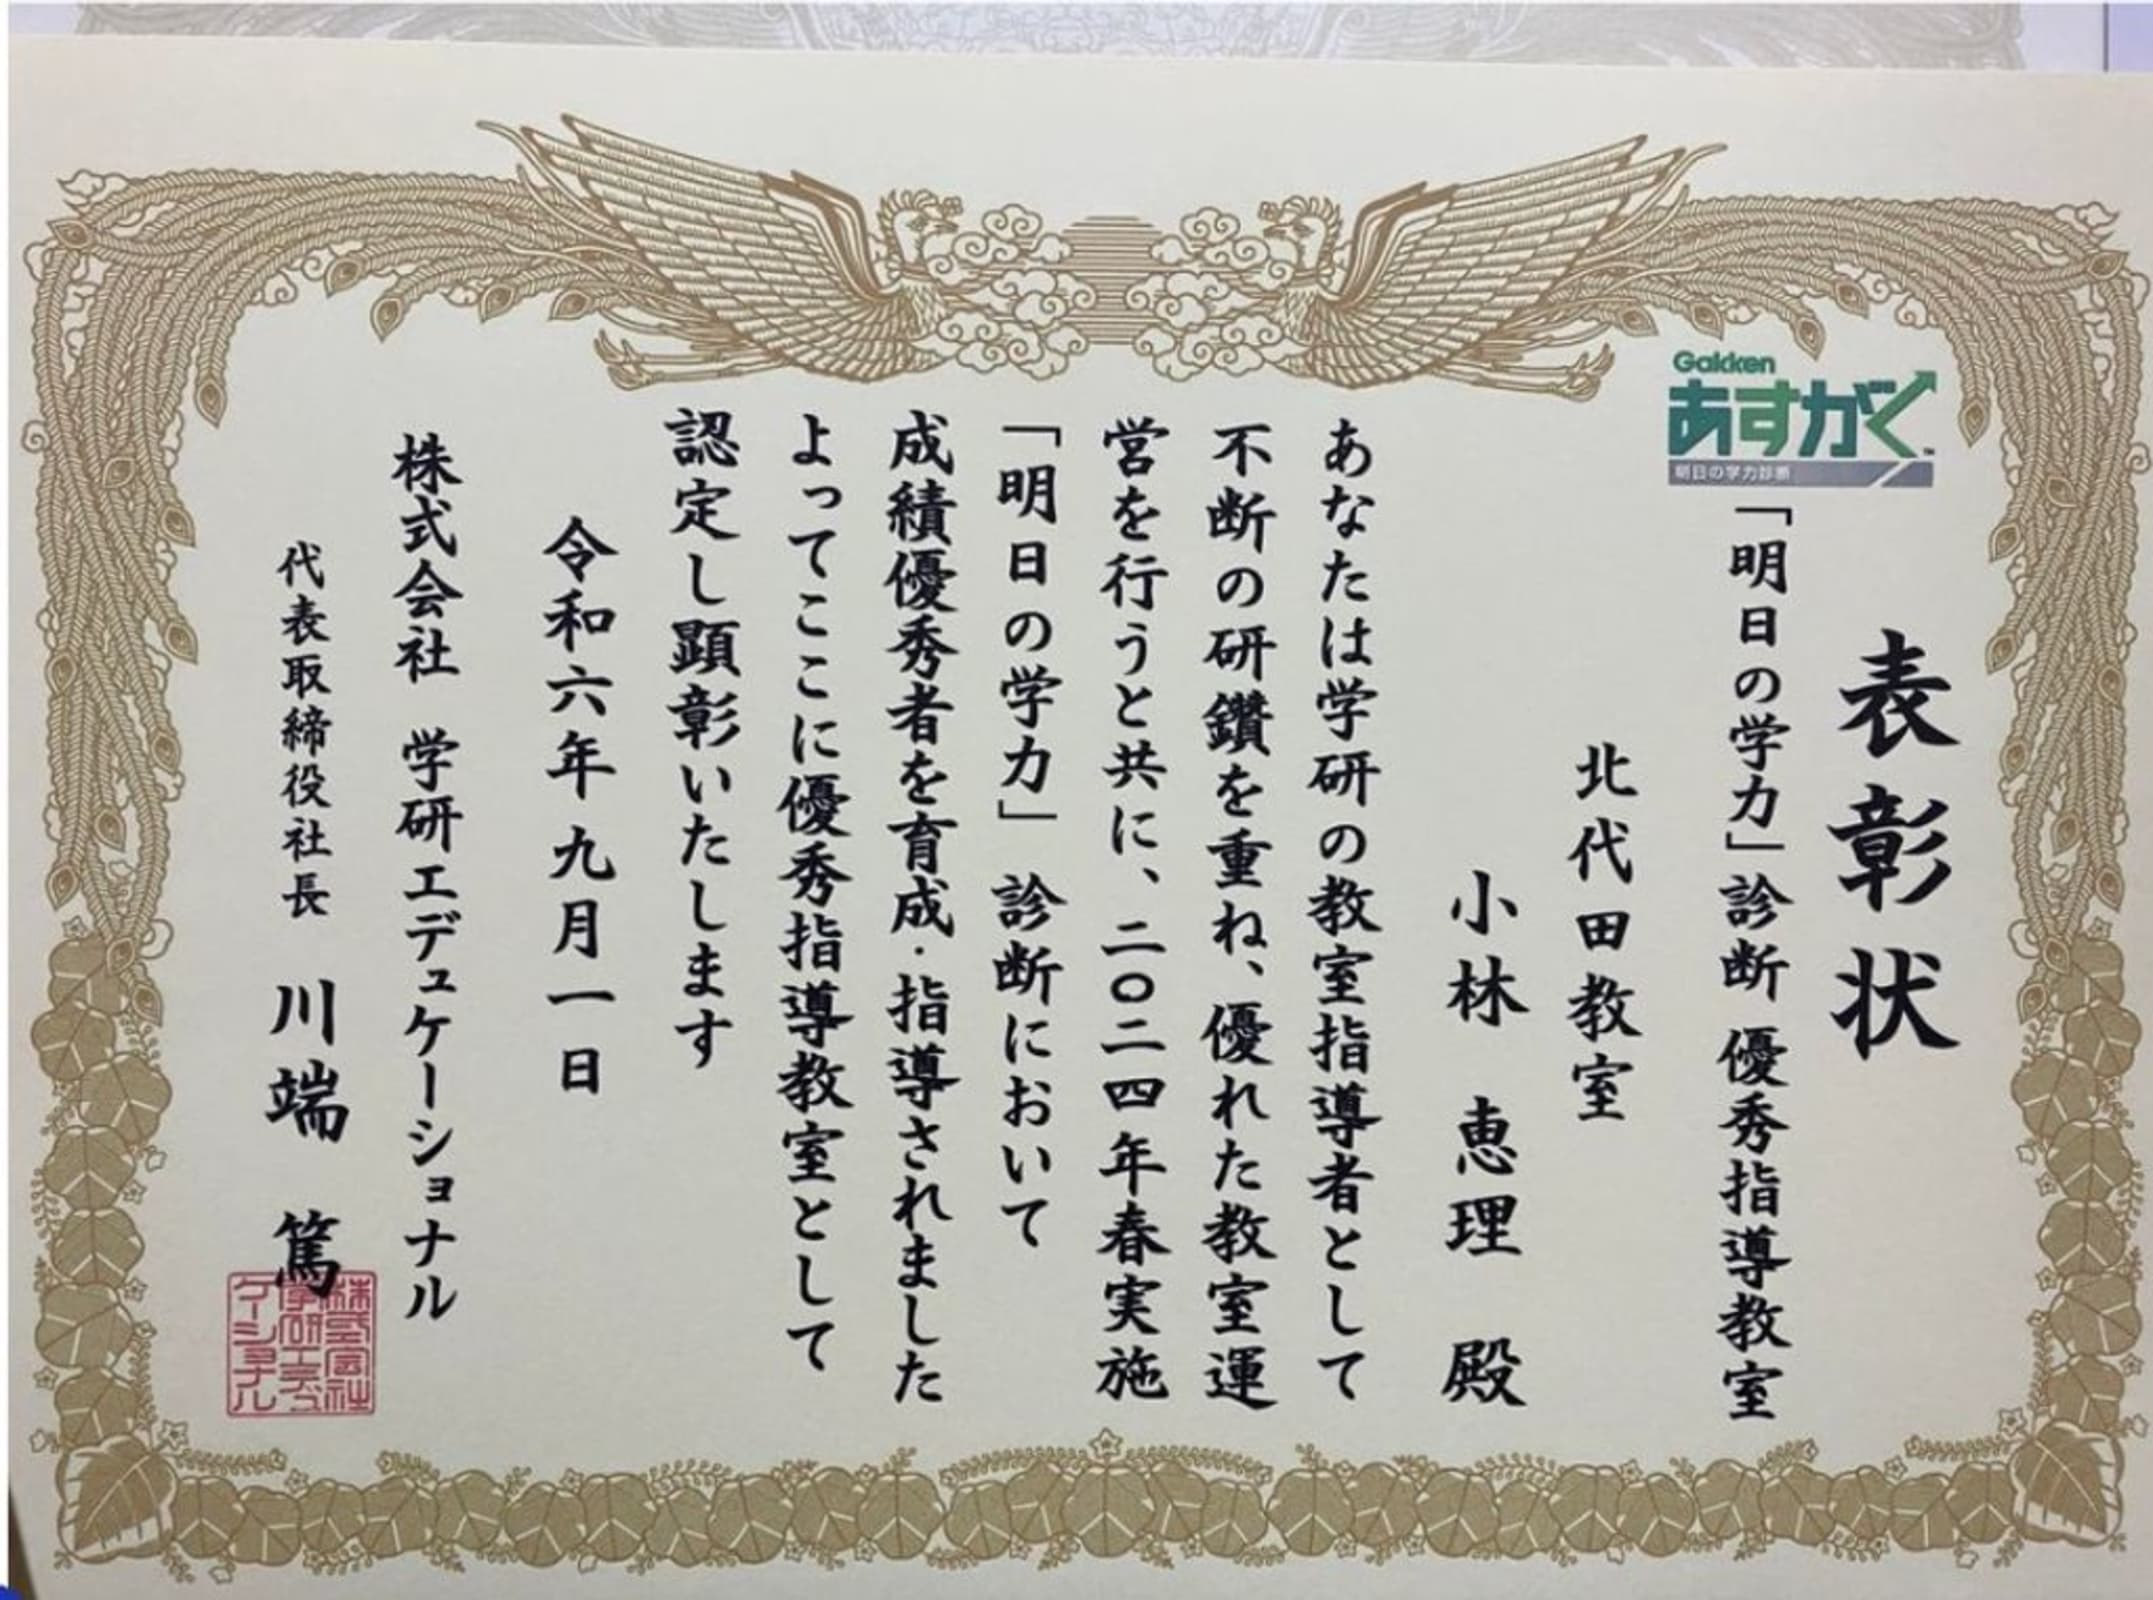 Gakken
あすがく
明日の学力診断
表彰状
「明日の学力」診断 優秀指導教室
北代田教室
小林 恵理 殿
あなたは学研の教室指導者として
不断の研鑽を重ね、優れた教室運
営を行うと共に、二〇二四年春実施
「明日の学力」診断において
成績優秀者を育成・指導されました
よってここに優秀指導教室として
認定し顕彰いたします
令和六年九月一日
株式会社 学研エデュケーショナル
代表取締役社長 川端 篤
株式会社
学研エデュ
ケーショナル